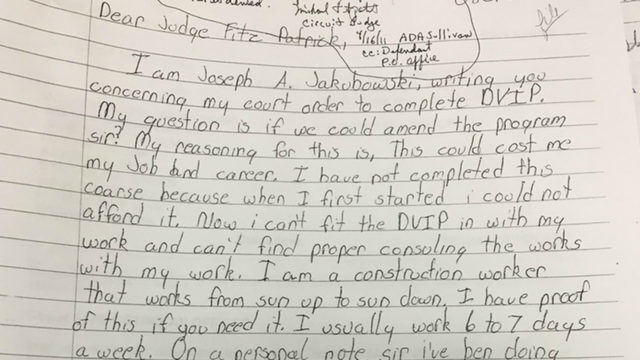 Michael Fitzpatrick
circuit Judge
9/16/11 ADA Sullivan
cc: Defendant
P.D. office
Dear Judge Fitz Patrick,
I am Joseph A. Jakubowski, writing you
concerning my court order to complete DVIP.
My question is if we could amend the program
sir? My reasoning for this is, This could cost me
my Job and career. I have not completed this
coarse because when I first started i could not
afford it. Now i can't fit the DVIP in with my
work and can't find proper consuling the works
with my work. I am a construction worker
that works from sun up to sun down. I have proof
of this if you need it. I usually work 6 to 7 days
a week. On a personal note sir i've ben doing